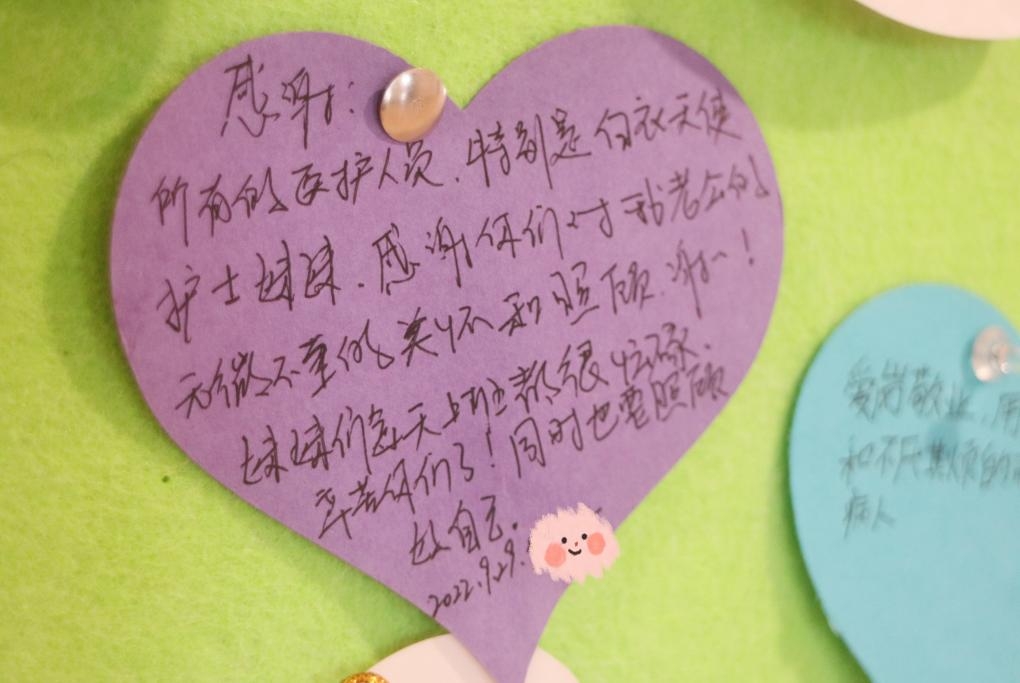 感谢:
所有的医护人员.特别是白衣天使
护士妹妹.感谢你们对我老公的
无微不至的关怀和照顾.谢〃!
妹妹们每天上班都很忙碌.
辛苦你们了!同时也要照顾
好自己.
2022.9.29.
爱岗敬业.用
和不厌其烦的
病人